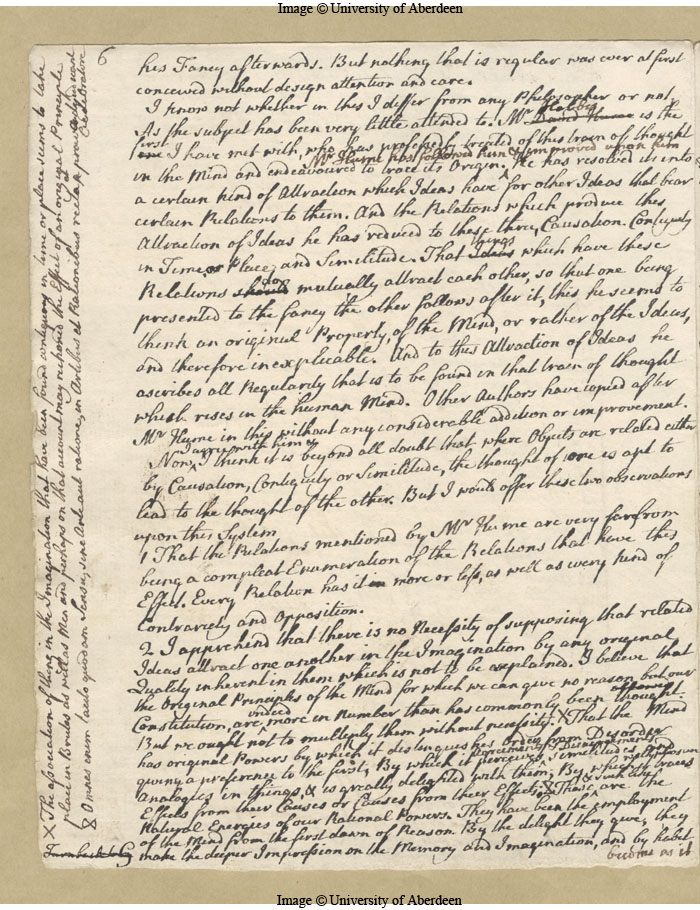 Image © University of Aberdeen
6
his Fancy afterwards. But nothing that is regular was ever at first
conceived without design attention and care.
I know not whether in this I differ from any Philosopher or not,
As the subject has been very little attended to. Mr Hobbes David Hume is the
first one I have met with, who has professedly treated of this train of thought
Mr Hume has followed him & improved upon him
in the Mind and endeavoured to trace its Origin. He has resolved it into
a certain kind of Attraction which Ideas have for other Ideas that bear
certain Relations to them. And the Relations which produce this
Attraction of Ideas he has reduced to these three, Causation, Contiguity
in Time or Place, and Similitude. That things Ideas which have these
Relations should do mutually attract each other, so that one being
presented to the fancy the other follows after it, this he seems to
think an original Property, of the Mind, or rather of the Ideas,
and therefore inexplicable. And to this Attraction of Ideas he
ascribes all Regularity that is to be found in that train of thought
which rises in the human Mind. Other Authors have copied after
Mr Hume in this without any considerable addition or improvement.
I agree with him &
Now, I think it is beyond all doubt that where Objects are related either
by Causation, Contiguity or Similitude, the thought of one is apt to
lead to the thought of the other. But I would offer these two observations
upon this System
1 That the Relations mentioned by Mr Hume are very far from
being a compleat Enumeration of the Relations that have this
Effect. Every Relation has it in more or less, as well as every kind of
Contrariety and Opposition.
2 I apprehend that there is no Necessity of supposing that related
Ideas attract one another in the Imagination by any original
Quality inherent in them which is not to be explained. I believe that
the Original Principles of the Mind for which we can give no reason but our
Constitution, are indeed more in Number than has commonly been thought.
But we ought not to multiply them without necessity. X That the Mind
has original Powers by which it distinguishes Order from Disorder
giving a preference to the first; By which it perceives Similitudes and
Analogies in things, & is greatly delighted with them; By which it traces
Effects from their Causes or Causes from their Effects; These & such are the
Natural Energies of our Rational Powers. They have been the employment
of the Mind from the first dawn of Reason. By the delight they give, they
make the deeper Impression on the Memory and Imagination, and by habit
become as it
X The association of things in the Imagination that have been found contiguous in time or place seems to take
place in Brutes as well as Men and perhaps on that account may be reckoned the Effect of an original Principle
Omnes enim tacito quodam Sensu, sine Arte aut ratione, in Artibus et Rationibus recta ac prava
Image © University of Aberdeen